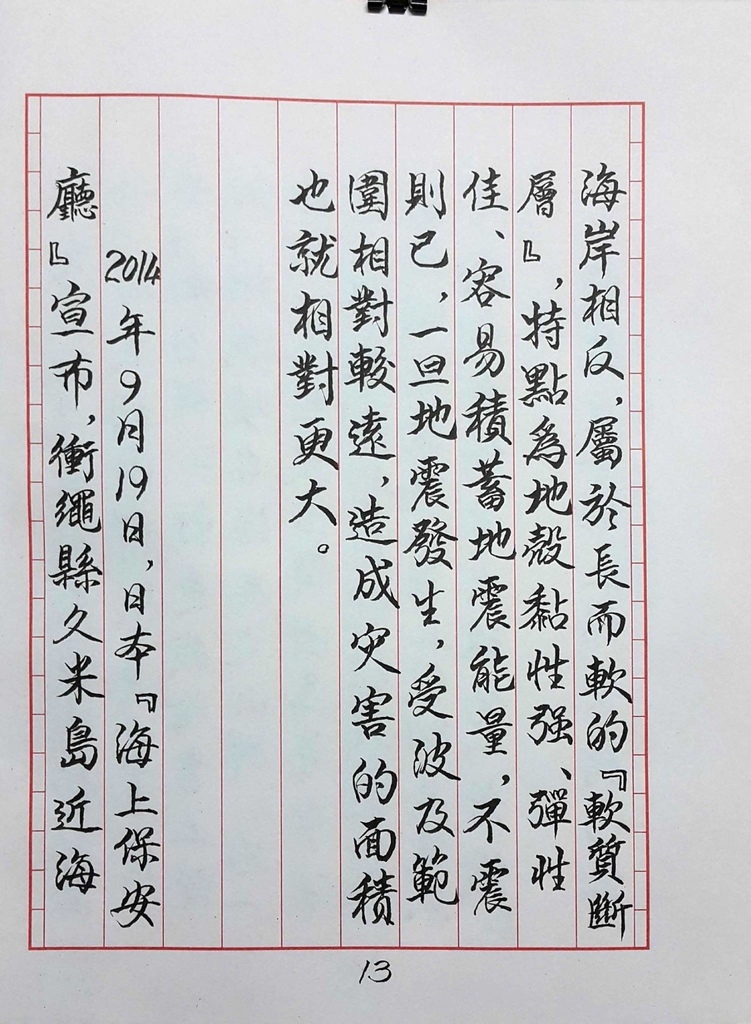 海岸相反，屬於長而軟的『軟質斷
層』，特點為地殼黏性强、彈性
佳、容易積蓄地震能量，不震
則已，一旦地震發生，受波及範
圍相對較遠，造成灾害的面積
也就相對更大。
2014年9月19日，日本『海上保安
廳』宣布，衝繩縣久米島近海
13